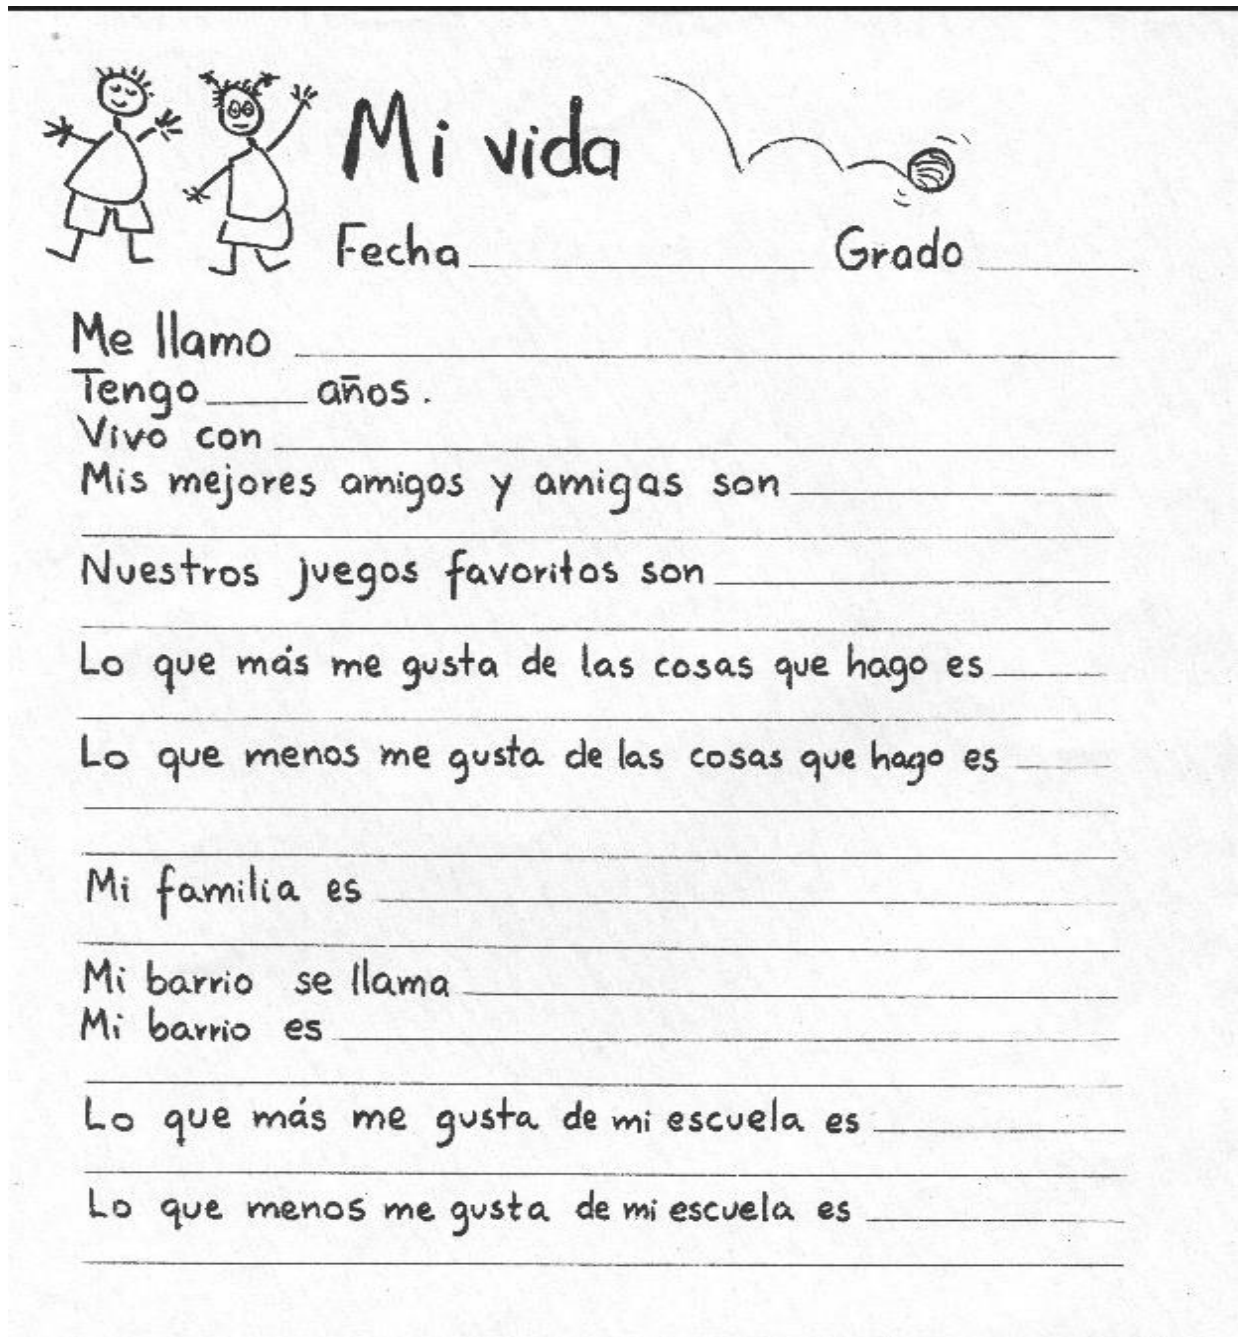 Mi vida
Fecha Grado
Me llamo
Tengo años.
Vivo con
Mis mejores amigos y amigas son
Nuestros juegos favoritos son
Lo que más me gusta de las cosas que hago es
Lo que menos me gusta de las cosas que hago es
Mi familia es
Mi barrio se llama
Mi barrio es
Lo que más me gusta de mi escuela es
Lo que menos me gusta de mi escuela es